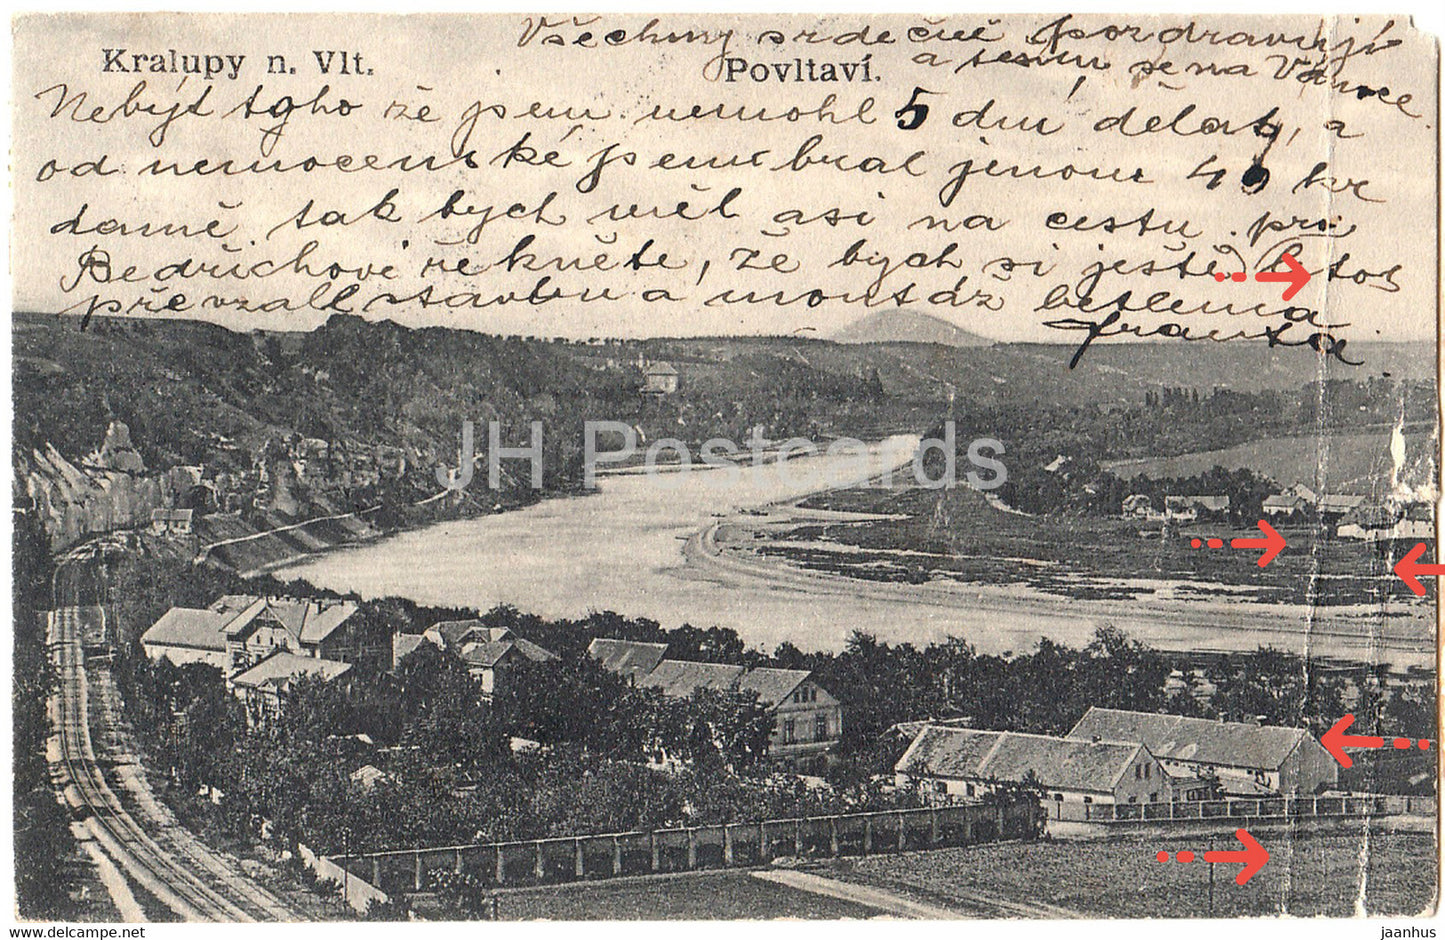 Všechny srdečně pozdravují
Kralupy n. Vlt.
Povltaví.
a těším se na Vánoce.
Nebýt toho že jsem nemohl 5 dní dělat, a
od nemocenské jsem bral jenom 40 kr
denně tak bych měl asi na cestu. při
Bedřichovi řekněte, že bych si ještě letos
převzal stavbu a montáž betlema
Franta
JH Postcards
www.delcampe.net
jaanhus